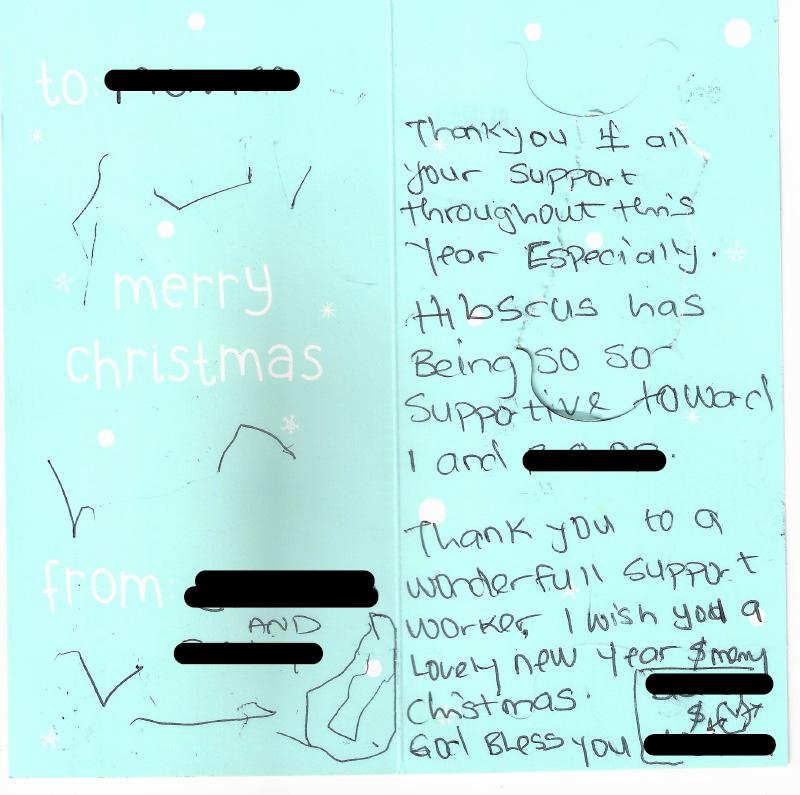 to:
merry
christmas
from:
AND
Thankyou 4 all
your support
throughout this
Year Especially.
Hibscus has
Being so sor
supportive toward
I and
Thank you to a
wonderfull support
worker, I wish you a
Lovely new year $ merry
Christmas.
$
God Bless you